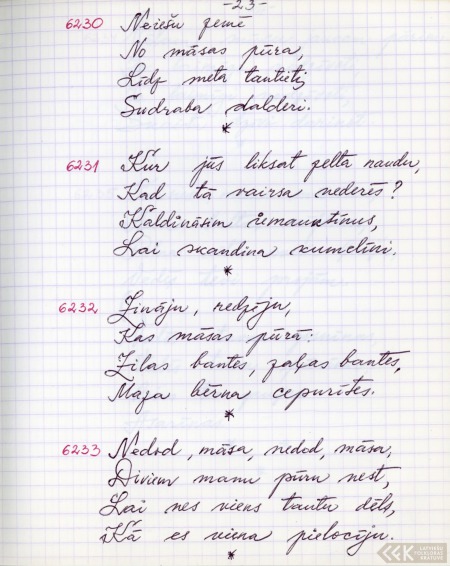 -23-
6230 Neiešu zemē
No māsas pūra,
Līdz meta tautieti
Sudraba dalderi.
*
6231 Kur jūs liksat zelta naudu,
Kad tā vairsa nederēs?
Kaldināsim iemauktinus,
Lai skandina kumelini.
*
6232 Zināju, redzēju,
Kas māsas pūrā:
Zilas bantes, zaļas bantes,
Maza bērna cepurītes.
*
6233 Nedod, māsa, nedod, māsa,
Diviem manu pūru nest,
Lai nes viens tautu dēls,
Kā es viena pielocīju.
*
LATVIEŠU
FOLKLORAS
KRĀTUVE